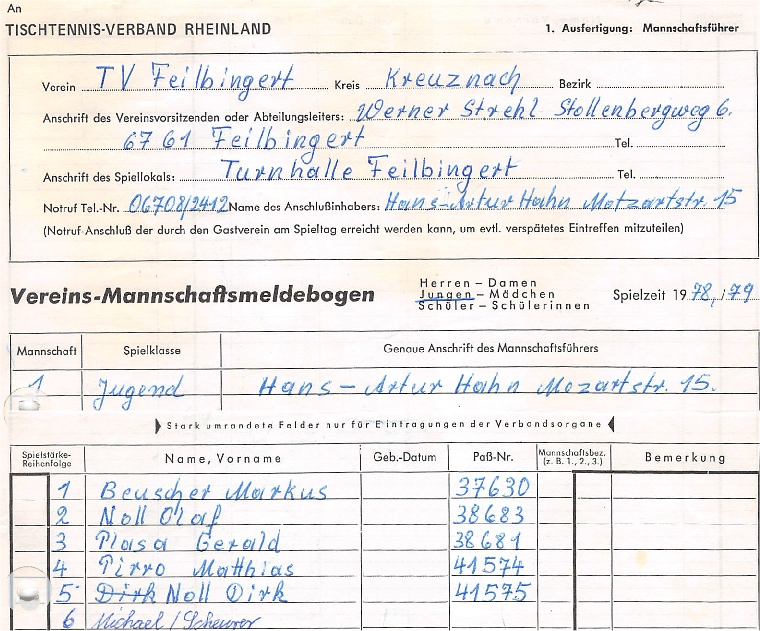 An
TISCHTENNIS-VERBAND RHEINLAND 1. Ausfertigung: Mannschaftsführer
Verein TV Feilbingert Kreis Kreuznach Bezirk
Anschrift des Vereinsvorsitzenden oder Abteilungsleiters: Werner Strehl Stollenbergweg 6.
6761 Feilbingert Tel.
Anschrift des Spiellokals: Turnhalle Feilbingert Tel.
Notruf Tel.-Nr. 06708/2412 Name des Anschlußinhabers: Hans-Artur Hahn Motzartstr. 15
(Notruf-Anschluß der durch den Gastverein am Spieltag erreicht werden kann, um evtl. verspätetes Eintreffen mitzuteilen)
Herren – Damen
Vereins-Mannschaftsmeldebogen Jungen – Mädchen Spielzeit 1978/79
Schüler – Schülerinnen
Mannschaft Spielklasse Genaue Anschrift des Mannschaftsführers
1 Jugend Hans – Artur Hahn Mozartstr. 15.
Stark umrandete Felder nur für Eintragungen der Verbandsorgane
Spielstärke-Reihenfolge Name, Vorname Geb.-Datum Paß-Nr. Mannschaftsbez. (z. B. 1., 2., 3.) Bemerkung
1 Beuscher Markus 37630
2 Noll Olaf 38683
3 Plasa Gerald 38681
4 Pirro Matthias 41574
5 Dirk Noll Dirk 41575
6 Michael / Scheurer